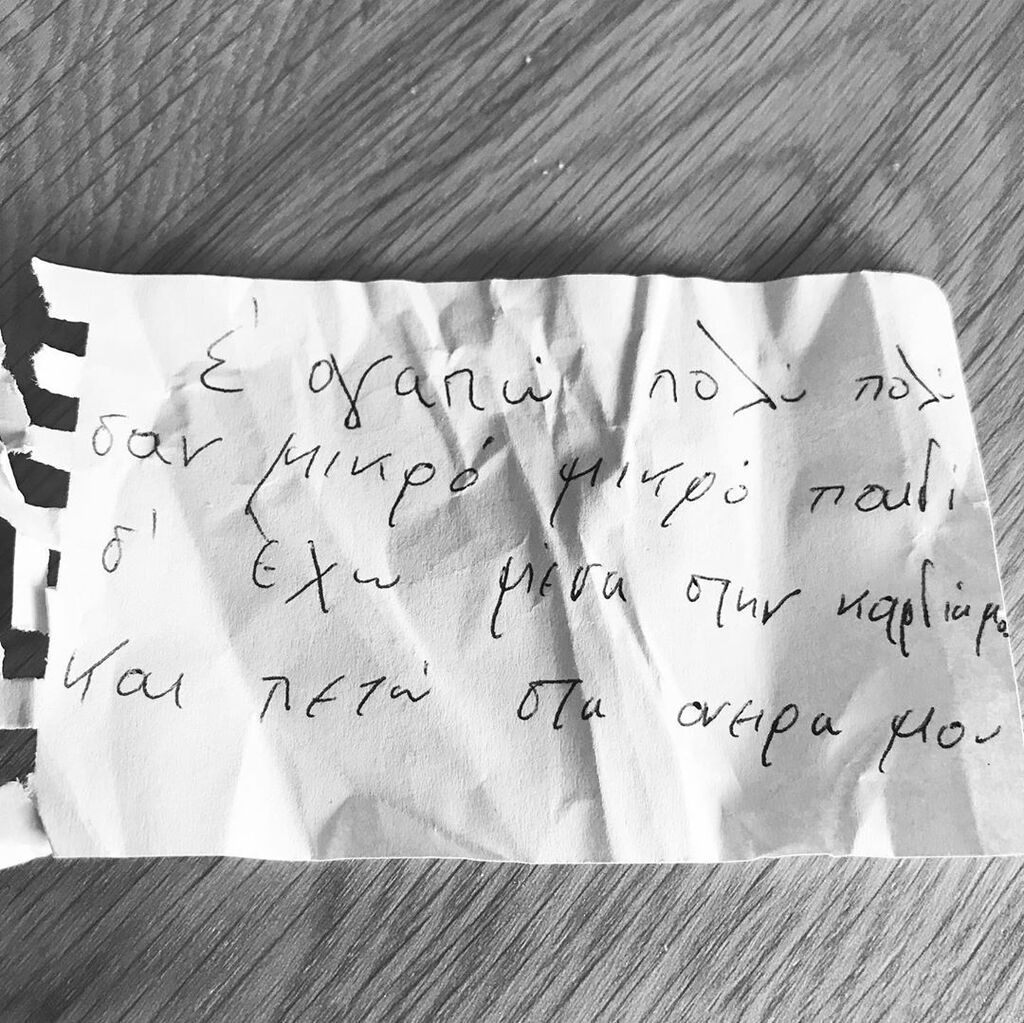 Σ' αγαπώ πολύ πολύ
σαν μικρό μικρό παιδί
σ' έχω μέσα στην καρδιά μου
και πετώ στα ονειρα μου